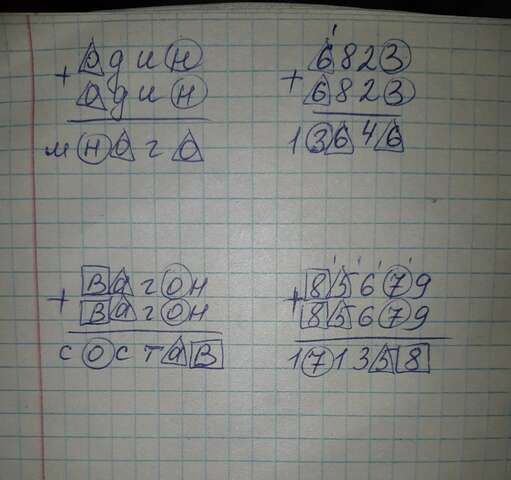 один
+
один
много
6823
+
6823
13646
вагон
+
вагон
состав
85679
+
85679
171358